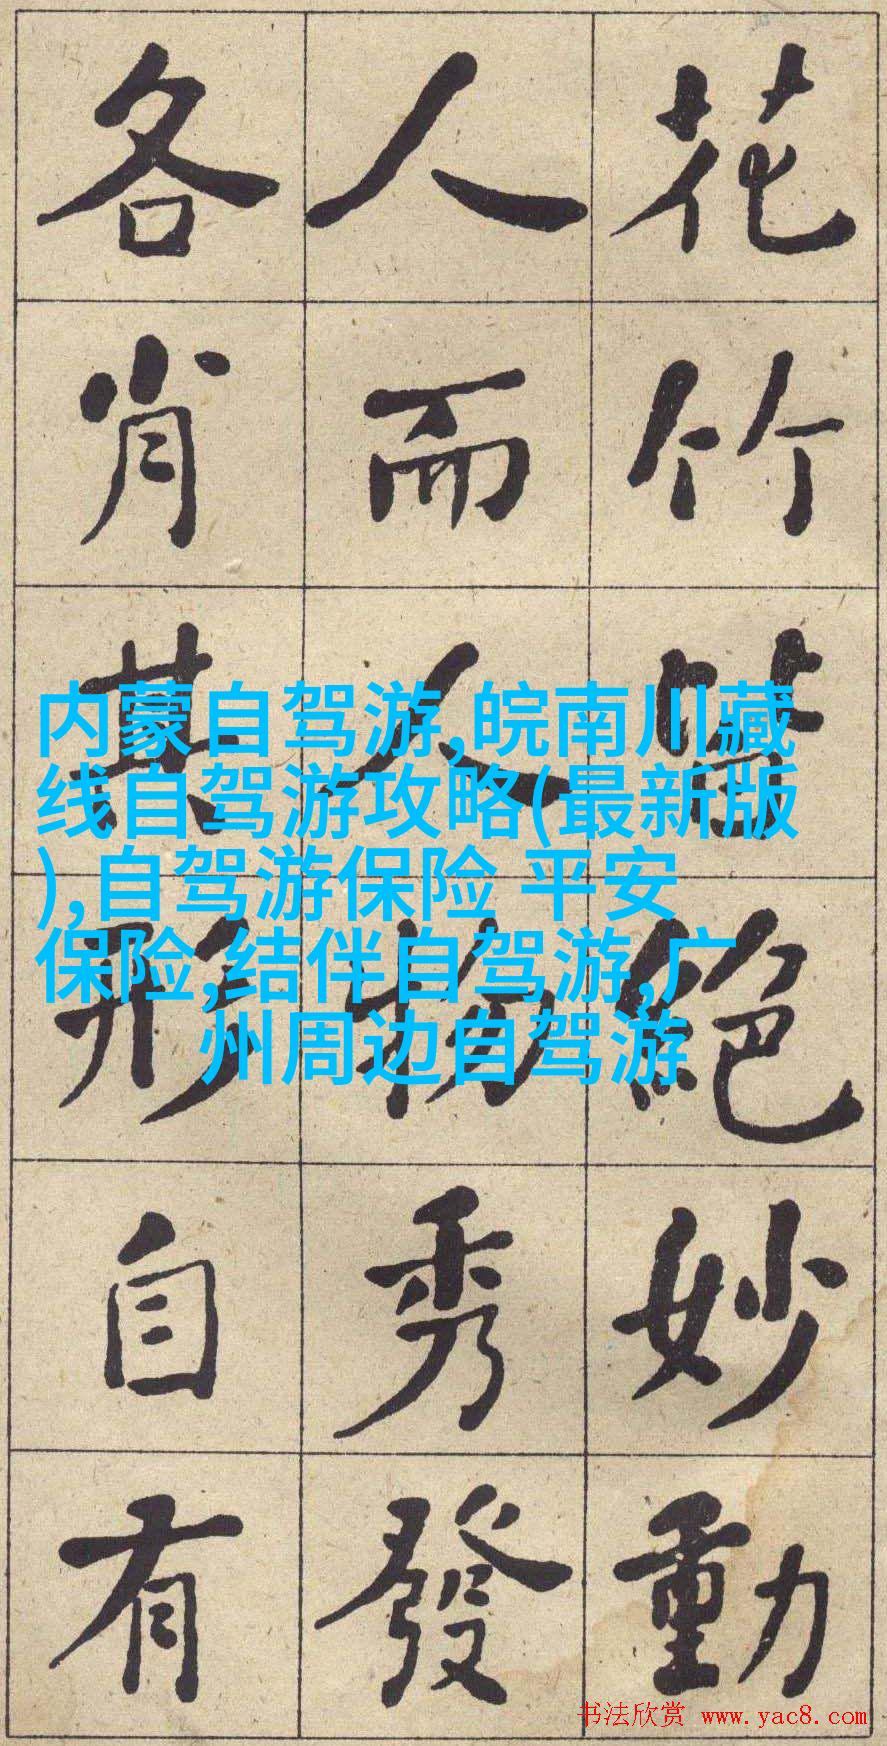 花竹皆絶妙動
人而人物秀發
各肖其形自有
内蒙自驾游,皖南川藏
线自驾游攻略(最新版
),自驾游保险 平安
保险,结伴自驾游,广
州周边自驾游
书法欣赏 www.yac8.com